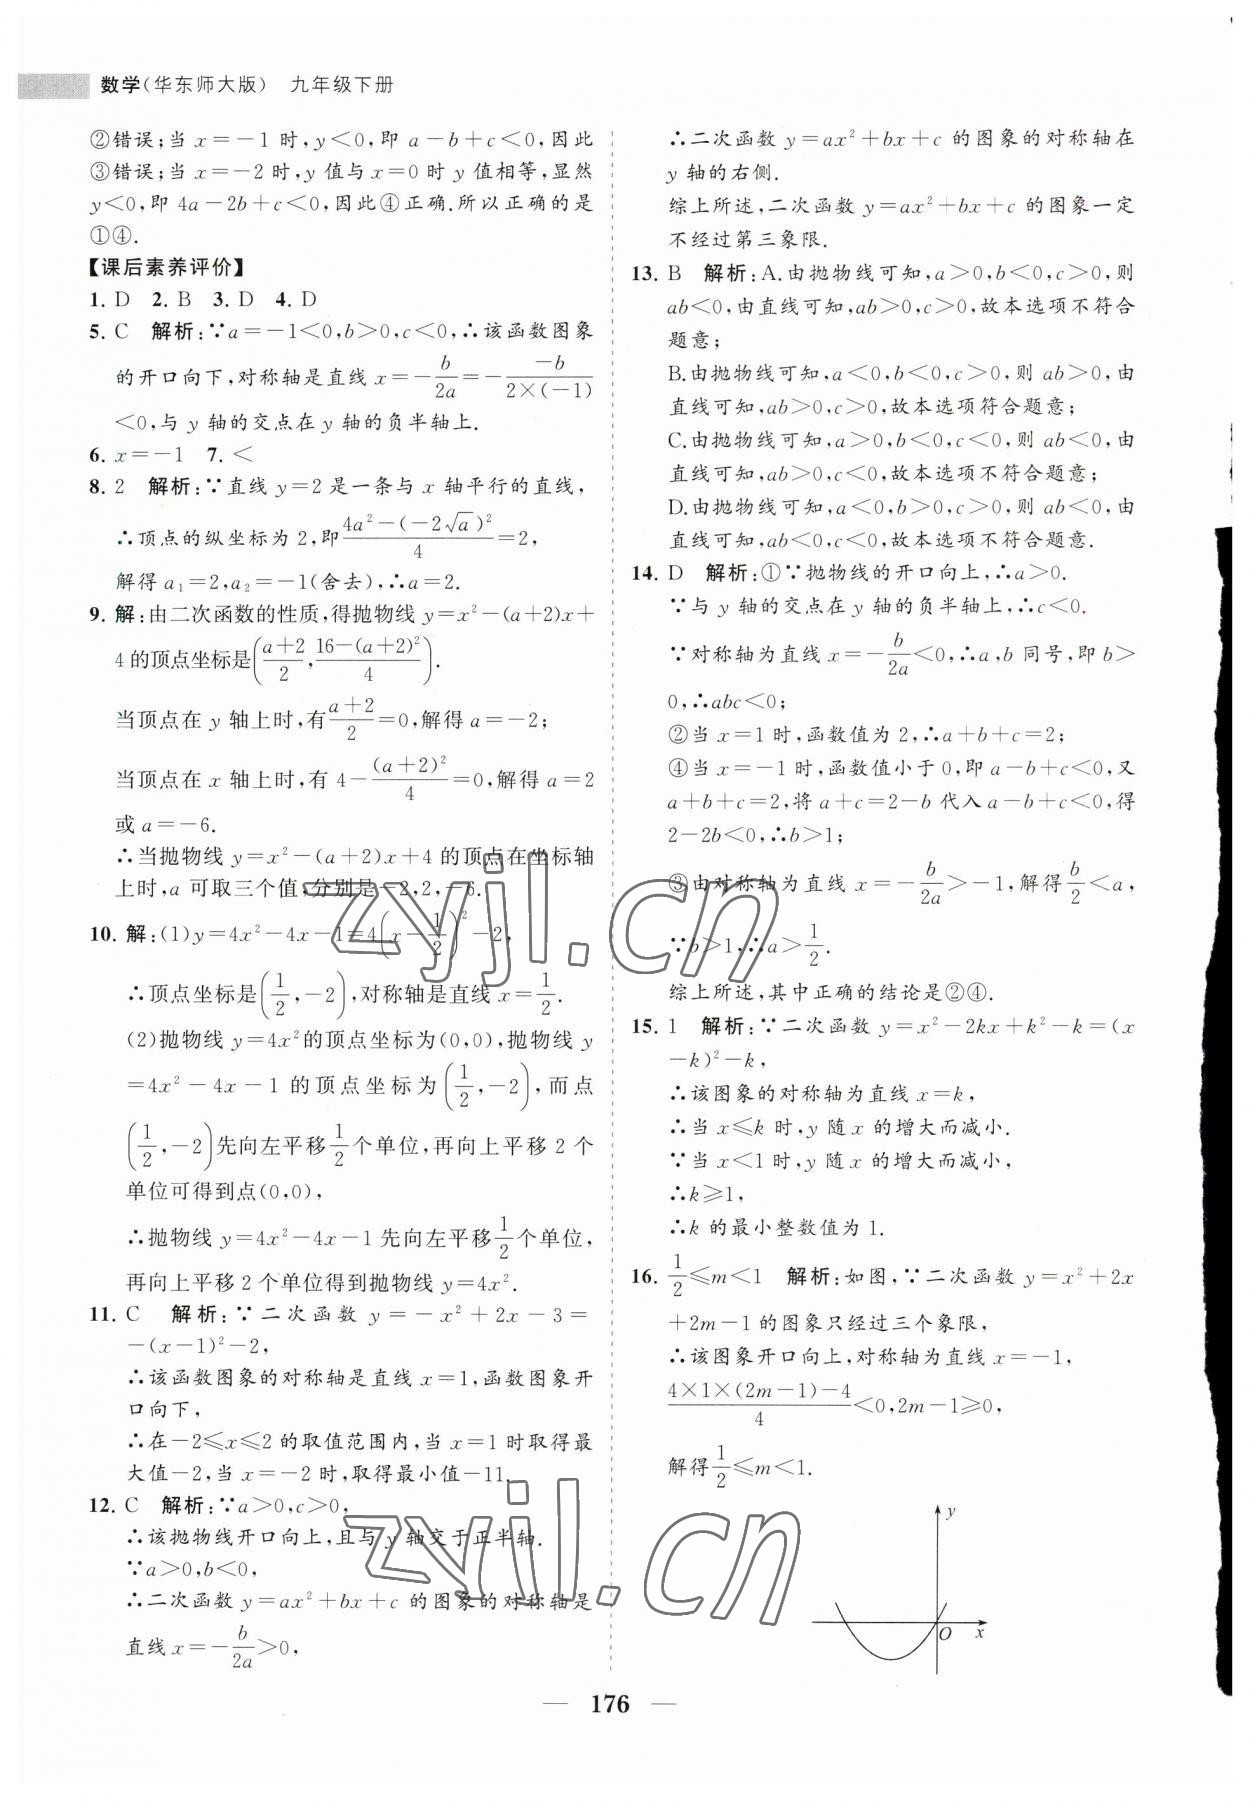 数学(华东师大版) 九年级下册
②错误;当 x=-1 时,y<0,即 a-b+c<0,因此
③错误;当 x=-2时,y 值与 x=0时 y 值相等,显然
y<0,即 4a-2b+c<0,因此④正确.所以正确的是
①④.
【课后素养评价】
1. D 2. B 3. D 4. D
5. C 解析:∵a=-1<0,b>0,c<0,∴该函数图象
的开口向下,对称轴是直线 x=-b/2a=--b/2×(-1)
<0,与 y 轴的交点在 y 轴的负半轴上.
6. x=-1 7. <
8. 2 解析:∵直线 y=2 是一条与 x 轴平行的直线,
∴顶点的纵坐标为 2,即(4a²-(-2√a)²)/4=2,
解得 a₁=2,a₂=-1(舍去),∴a=2.
9. 解:由二次函数的性质,得抛物线 y=x²-(a+2)x+
4的顶点坐标是((a+2)/2,(16-(a+2)²)/4).
当顶点在 y 轴上时,有(a+2)/2=0,解得 a=-2;
当顶点在 x 轴上时,有 4-(a+2)²/4=0,解得 a=2
或 a=-6.
∴当抛物线 y=x²-(a+2)x+4 的顶点在坐标轴
上时,a 可取三个值,分别是-2,2,-6.
10. 解:(1)y=4x²-4x-1=4(x-1/2)²-2,
∴顶点坐标是(1/2,-2),对称轴是直线 x=1/2.
(2)抛物线 y=4x²的顶点坐标为(0,0),抛物线
y=4x²-4x-1 的顶点坐标为(1/2,-2),而点
(1/2,-2)先向左平移1/2个单位,再向上平移 2 个
单位可得到点(0,0),
∴抛物线 y=4x²-4x-1 先向左平移1/2个单位,
再向上平移 2 个单位得到抛物线 y=4x².
11. C 解析:∵二次函数 y=-x²+2x-3=
-(x-1)²-2,
∴该函数图象的对称轴是直线 x=1,函数图象开
口向下,
∴在-2≤x≤2 的取值范围内,当 x=1 时取得最
大值-2,当 x=-2 时,取得最小值-11.
12. C 解析:∵a>0,c>0,
∴该抛物线开口向上,且与 y 轴交于正半轴.
∵a>0,b<0,
∴二次函数 y=ax²+bx+c 的图象的对称轴是
直线 x=-b/2a>0,
∴二次函数 y=ax²+bx+c 的图象的对称轴在
y 轴的右侧.
综上所述,二次函数 y=ax²+bx+c 的图象一定
不经过第三象限.
13. B 解析:A.由抛物线可知,a>0,b<0,c>0,则
ab<0,由直线可知,ab>0,c>0,故本选项不符合
题意;
B.由抛物线可知,a<0,b<0,c>0,则 ab>0,由
直线可知,ab>0,c>0,故本选项符合题意;
C.由抛物线可知,a>0,b<0,c<0,则 ab<0,由
直线可知,ab>0,c<0,故本选项不符合题意;
D.由抛物线可知,a<0,b>0,c>0,则 ab<0,由
直线可知,ab<0,c<0,故本选项不符合题意.
14. D 解析:①∵抛物线的开口向上,∴a>0.
∵与 y 轴的交点在 y 轴的负半轴上,∴c<0.
∵对称轴为直线 x=-b/2a<0,∴a,b 同号,即 b>
0,∴abc<0;
②当 x=1 时,函数值为 2,∴a+b+c=2;
④当 x=-1 时,函数值小于 0,即 a-b+c<0,又
a+b+c=2,将 a+c=2-b 代入 a-b+c<0,得
2-2b<0,∴b>1;
③由对称轴为直线 x=-b/2a>-1,解得b/2<a,
∵b>1,∴a>1/2.
综上所述,其中正确的结论是②④.
15. 1 解析:∵二次函数 y=x²-2kx+k²-k=(x
-k)²-k,
∴该图象的对称轴为直线 x=k,
∴当 x≤k 时,y 随 x 的增大而减小.
∵当 x<1 时,y 随 x 的增大而减小,
∴k≥1,
∴k 的最小整数值为 1.
16. 1/2≤m<1 解析:如图,∵二次函数 y=x²+2x
+2m-1 的图象只经过三个象限,
∴该图象开口向上,对称轴为直线 x=-1,
(4×1×(2m-1)-4)/4<0,2m-1≥0,
解得1/2≤m<1.
y
O x
zyjl.cn
zyjl.cn
— 176 —